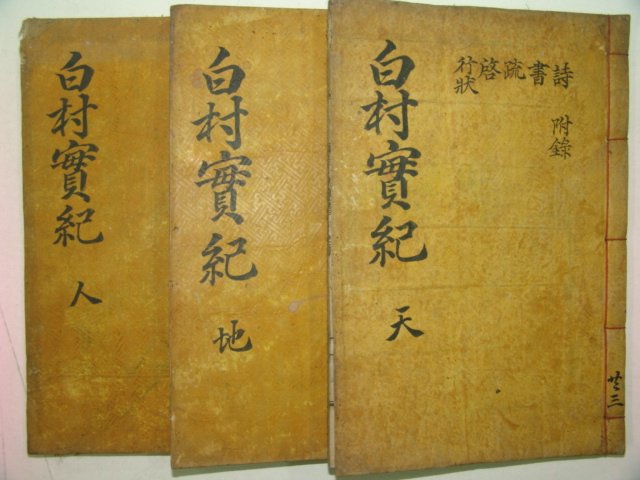 詩 附錄
書
疏
啓
行狀
白村實紀 天
共三
白村實紀 地
白村實紀 人